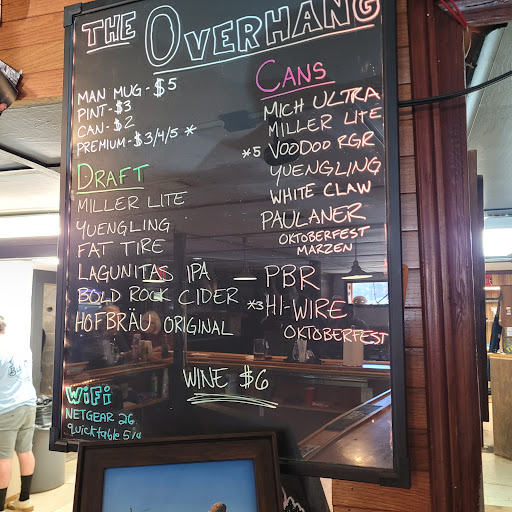 THE OVERHANG
MAN MUG - $5
PINT - $3
CAN - $2
PREMIUM - $3/4/5 *
DRAFT
MILLER LITE
YUENGLING
FAT TIRE
LAGUNITAS IPA
BOLD ROCK CIDER
HOFBRÄU ORIGINAL
CANS
MICH ULTRA
MILLER LITE
*5 VOODOO RGR
YUENGLING
WHITE CLAW
PAULANER
OKTOBERFEST
MARZEN
PBR
*3 HI-WIRE
OKTOBERFEST
WINE $6
WiFi
NETGEAR 26